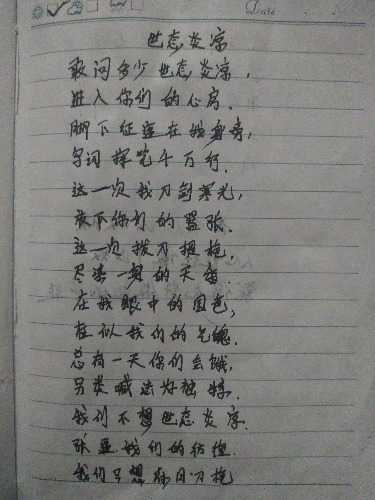 Date
世态炎凉
敢问多少世态炎凉,
进入你们的心房.
脚下征途在我身旁,
字词挥笔千万行.
这一次我刀剑寒光,
放下你们的嚣张.
这一次拔刀握枪.
尽染一身的天
在我眼中的国色,
在似我们的气魄.
总有一天你们会饿,
另类喊法好独特.
我们不想世态炎凉.
我们的彷徨.
我们只想